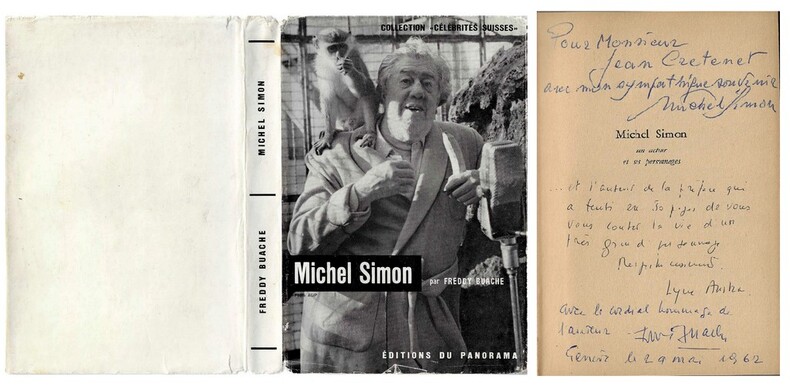 MICHEL SIMON
FREDDY BUACHE
COLLECTION «CÉLÉBRITÉS SUISSES»
Michel Simon par FREDDY BUACHE
ÉDITIONS DU PANORAMA
Pour Monsieur
Jean Cretenet
avec mon sympathique souvenir
Michel Simon
Michel Simon
un acteur
et ses personnages
... et l'auteur de la préface qui
a tenté en 50 pages de vous
vous conter la vie d'un
très grand personnage
Respectueusement.
avec le cordial hommage de
l'auteur
Genève le 29 mai 1962